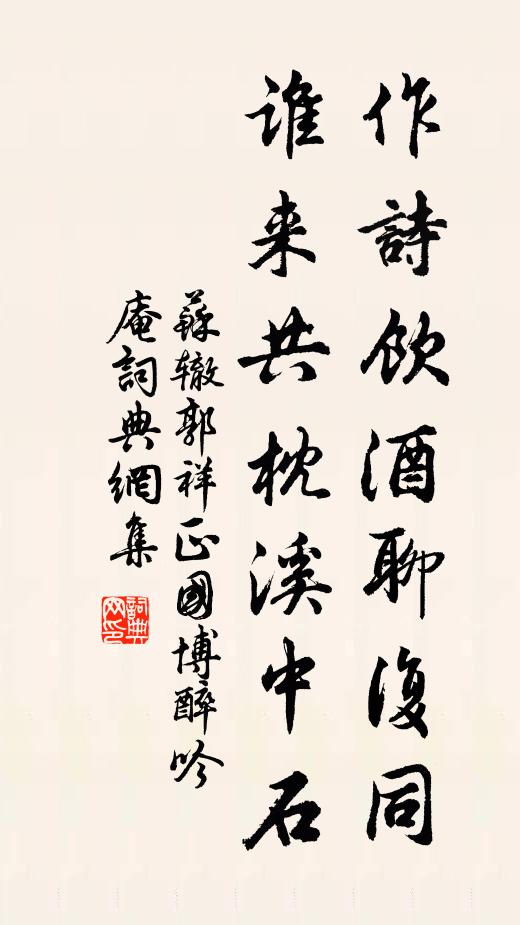 作詩飲酒聊復同
谁来共枕溪中石
蘇辙郭祥正國博醉吟
庵詞典網集
詞典
网印